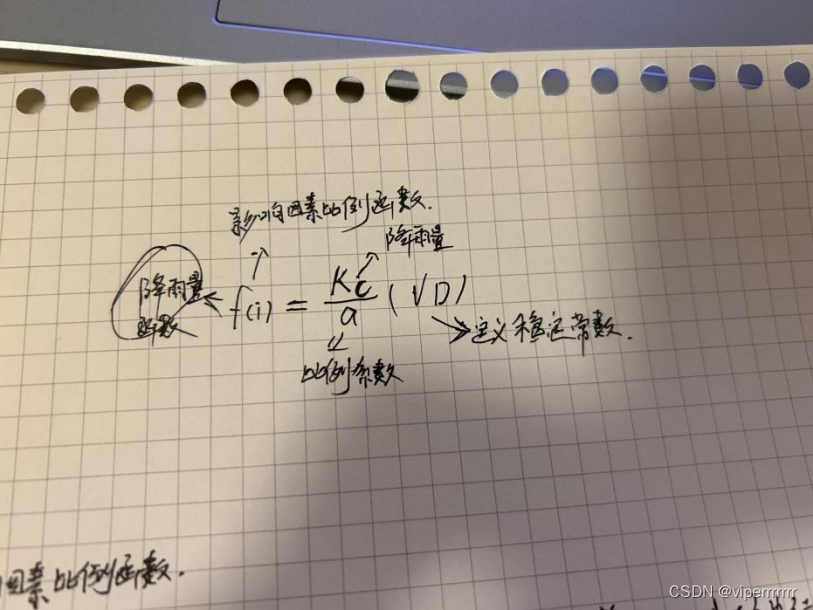 影响因素比例函数.
降雨量
降雨量
函数
f(i) = \frac{Kc}{a} (√D)
定义稳定常数.
比例系数
因素比例函数.
CSDN @viperrrrrrr